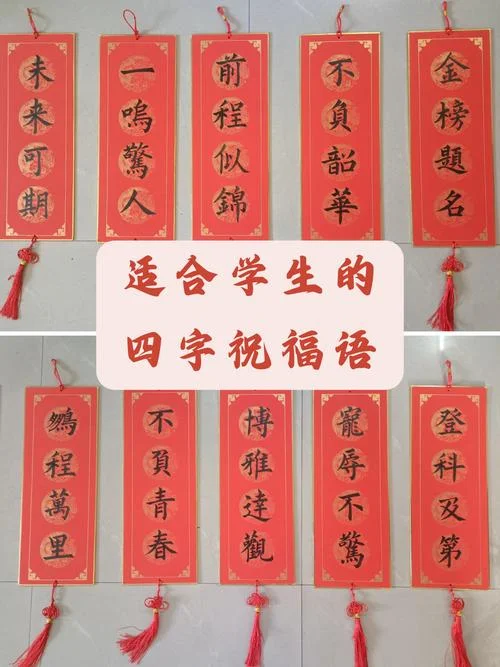 未来可期
一鳴驚人
前程似錦
不負韶華
金榜題名
适合学生的
四字祝福语
鵬程萬里
不負青春
博雅達觀
寵辱不驚
登科及第